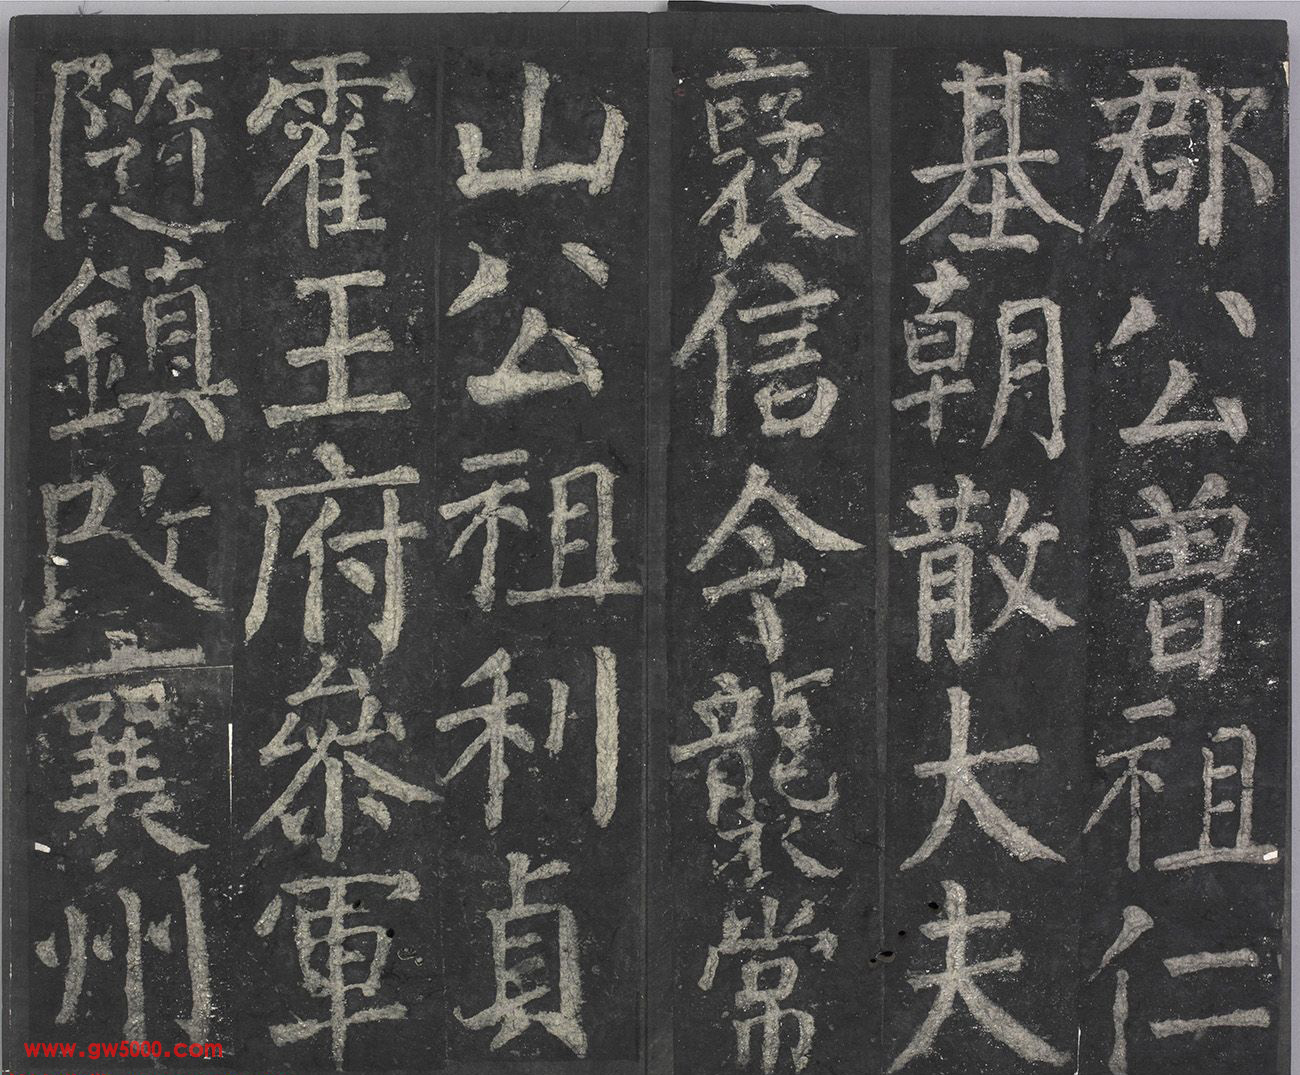 郡公曾祖仁
基朝散大夫
襃信令襲常
山公祖利貞
霍王府叅軍
隨鎮改襄州
www.gw5000.com